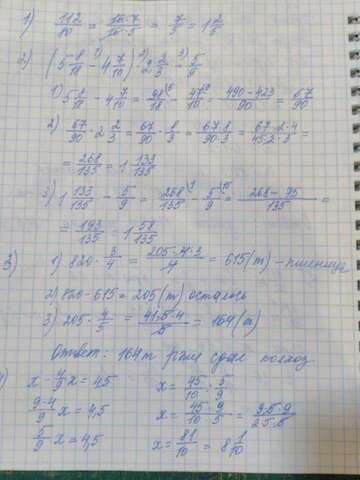 1) 112/80 = 16·7/16·5 = 7/5 = 1 2/5
2) (5 8/18 - 4 7/10) · 2 2/3 - 5/9
1) 5 8/18 - 4 7/10 = 98/18 - 47/10 = 490-423/90 = 67/90
2) 67/90 · 2 2/3 = 67/90 · 8/3 = 67·8/90·3 = 67·2·4/45·2·3 =
= 268/135 = 1 133/135
3) 1 133/135 - 5/9 = 268/135 - 5/9 = 268-75/135 =
= 193/135 = 1 58/135
3) 1) 820 · 3/4 = 205·4·3/4 = 615 (т) - пшеница
2) 820-615 = 205 (т) осталось
3) 205 · 4/5 = 41·5·4/5 = 164 (т)
Ответ: 164 т ржи сдал колхоз
x - 4/9 x = 4,5
x = 45/10 : 5/9
9-4/9 x = 4,5
x = 45/10 · 9/5 =
5/9 x = 4,5
x = 81/10 = 8 1/10